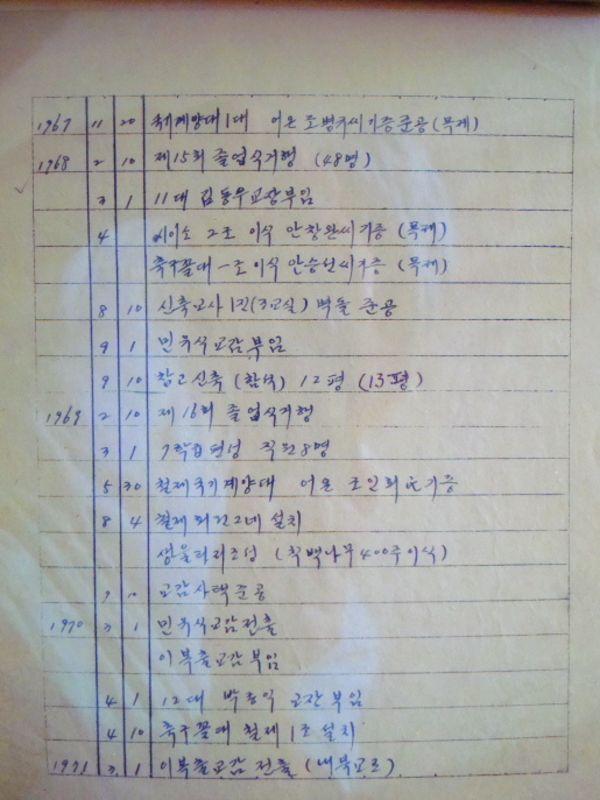 1967 11 20 국기계양대 1대 어온 조병주씨 기증 준공 (목제)
1968 2 10 제15회 졸업식거행 (48명)
3 1 11대 김동우교장부임
4 씨이소 2조 이식 안창완씨 기증 (목제)
축구꼴대 一조 이식 안승헌씨 기증 (목제)
8 10 신축교사 1진(3교실) 벽돌 준공
9 1 민유식교감부임
9 10 창고신축 (함석) 12평 (13평)
1969 2 10 제16회 졸업식거행
3 1 7학급편성 직원8명
5 30 철제국기계양대 어온 조인희氏기증
8 4 철제 회전그네 설치
생울타리조성 (측백나무400주이식)
9 10 교감사택준공
1970 3 1 민유식교감전출
이복출교감부임
4 1 12대 박종익 교장부임
4 10 축구꼴대 철제 1조 설치
1971 3 1 이복출교감전출 (내북교로)